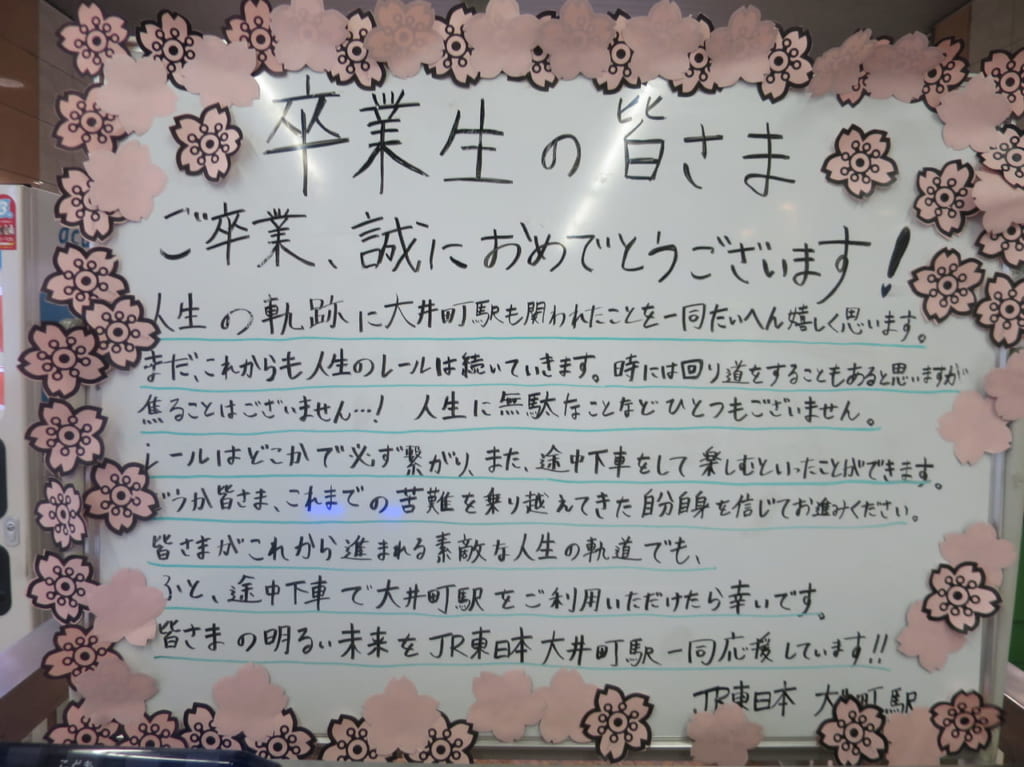 卒業生の皆さま
ご卒業、誠におめでとうございます！
人生の軌跡に大井町駅も関われたことを一同たいへん嬉しく思います。
まだ、これからも人生のレールは続いていきます。時には回り道をすることもあると思いますが
焦ることはございません…！ 人生に無駄なことなどひとつもございません。
レールはどこかで必ず繋がり、また、途中下車をして楽しむといったことができます。
どうか皆さま、これまでの苦難を乗り越えてきた自分自身を信じてお進みください。
皆さまがこれから進まれる素敵な人生の軌道でも、
ふと、途中下車で大井町駅をご利用いただけたら幸いです。
皆さまの明るい未来をJR東日本大井町駅一同応援しています!!
JR東日本 大井町駅
こども